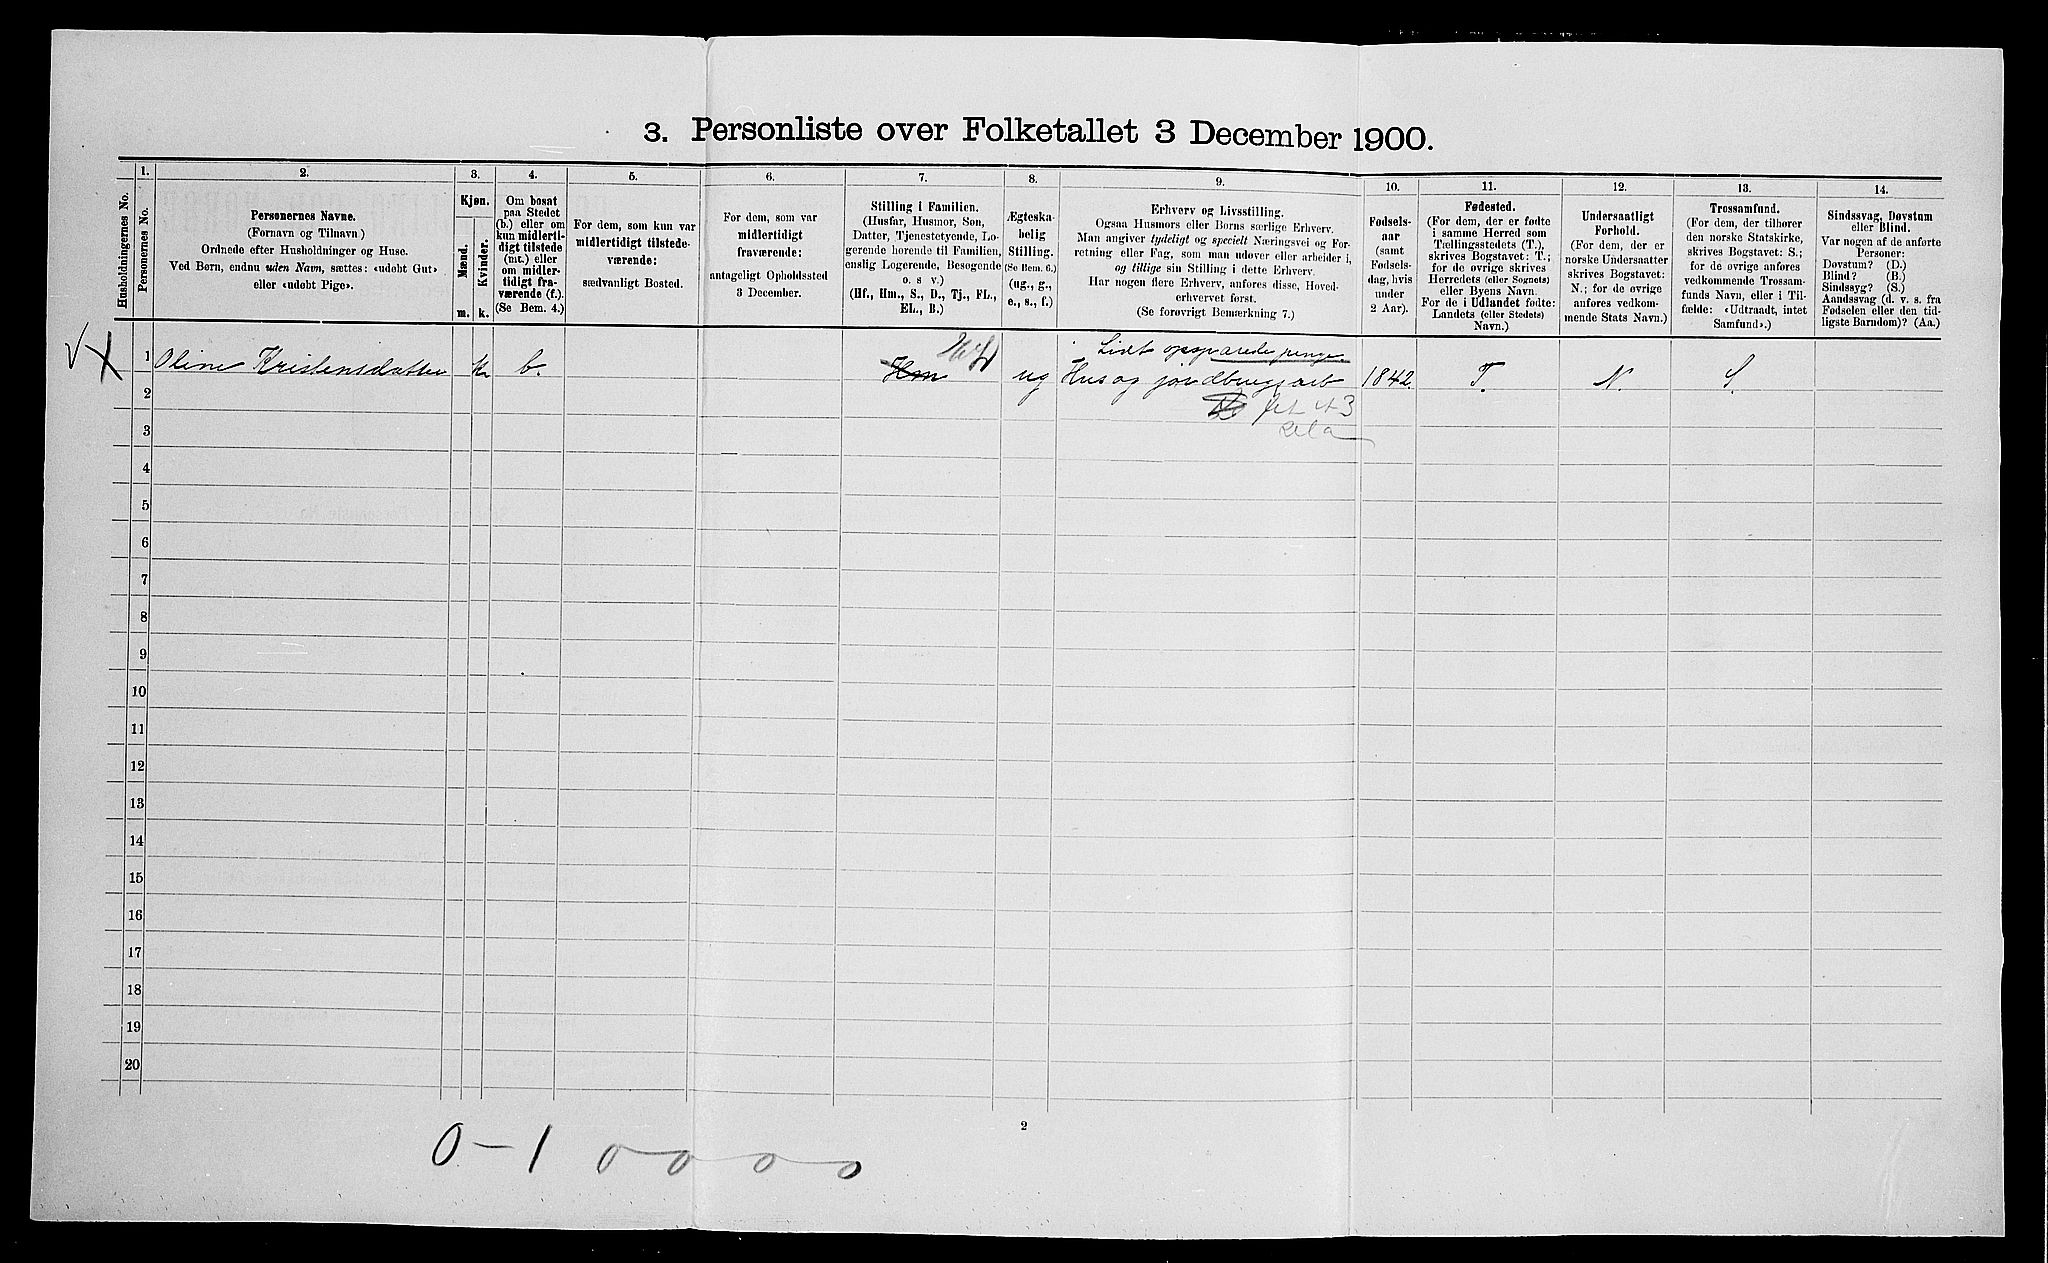 3. Personliste over Folketallet 3 December 1900.
Husholdningernes No.
1.
Personernes No.
2.
Personernes Navne.
(Fornavn og Tilnavn.)
Ordnede efter Husholdninger og Huse.
Ved Børn, endnu uden Navn, sættes: «udøbt Gut»
eller «udøbt Pige».
3.
Kjøn.
Mænd.
Kvinder.
m. k.
4.
Om bosat
paa Stedet
(b.) eller om
kun midlerti-
digt tilstede
(mt.) eller
om midler-
tidigt fra-
værende (f.).
(Se Bem. 4.)
5.
For dem, som kun var
midlertidigt tilstede-
værende:
sædvanligt Bosted.
6.
For dem, som var
midlertidigt
fraværende:
antageligt Opholdssted
3 December.
7.
Stilling i Familien.
(Husfar, Husmor, Søn,
Datter, Tjenestetyende, Lo-
gerende hørende til Familien,
enslig Logerende, Besøgende
o. s v.)
(Hf., Hm., S., D., Tj., FL.,
EL., B.)
8.
Ægteska-
belig
Stilling.
(Se Bem. 6.)
(ug., g.,
e., s., f.)
9.
Erhverv og Livsstilling.
Ogsaa Husmors eller Børns særlige Erhverv.
Man angiver tydeligt og specielt Næringsvei og For-
retning eller Fag, som man udøver eller arbeider i,
og tillige sin Stilling i dette Erhverv.
Har nogen flere Erhverv, anføres disse, Hoved-
erhvervet først.
(Se forøvrigt Bemærkning 7.)
10.
Fødsels-
aar
(samt
Fødsels-
dag, hvis
under
2 Aar).
11.
Fødested.
(For dem, der er fødte
i samme Herred som
Tællingsstedets (T.),
skrives Bogstavet: T.;
for de øvrige skrives
Herredets (eller Sognets)
eller Byens Navn.
For de i Udlandet fødte:
Landets (eller Stedets)
Navn.)
12.
Undersaatligt
Forhold.
(For dem, der er
norske Undersaatter
skrives Bogstavet:
N.; for de øvrige
anføres vedkom-
mende Stats Navn.)
13.
Trossamfund.
(For dem, der tilhører
den norske Statskirke,
skrives Bogstavet: S.;
for de øvrige anføres
vedkommende Trossam-
funds Navn, eller i Til-
fælde: «Udtraadt, intet
Samfund».)
14.
Sindssvag, Døvstum
eller Blind.
Var nogen af de anførte
Personer:
Døvstum? (D.)
Blind? (B.)
Sindssyg? (S.)
Aandssvag (d. v. s. fra
Fødselen eller den tid-
ligste Barndom)? (Aa.)
Lidt opsparede penge.
1 Oline Kristensdatter k b. Hm ug Hus og jordbrugsarb 1842. T. N. S.
2
3
4
5
6
7
8
9
10
11
12
13
14
15
16
17
18
19
20
2
0 - 1 0 0 0 0